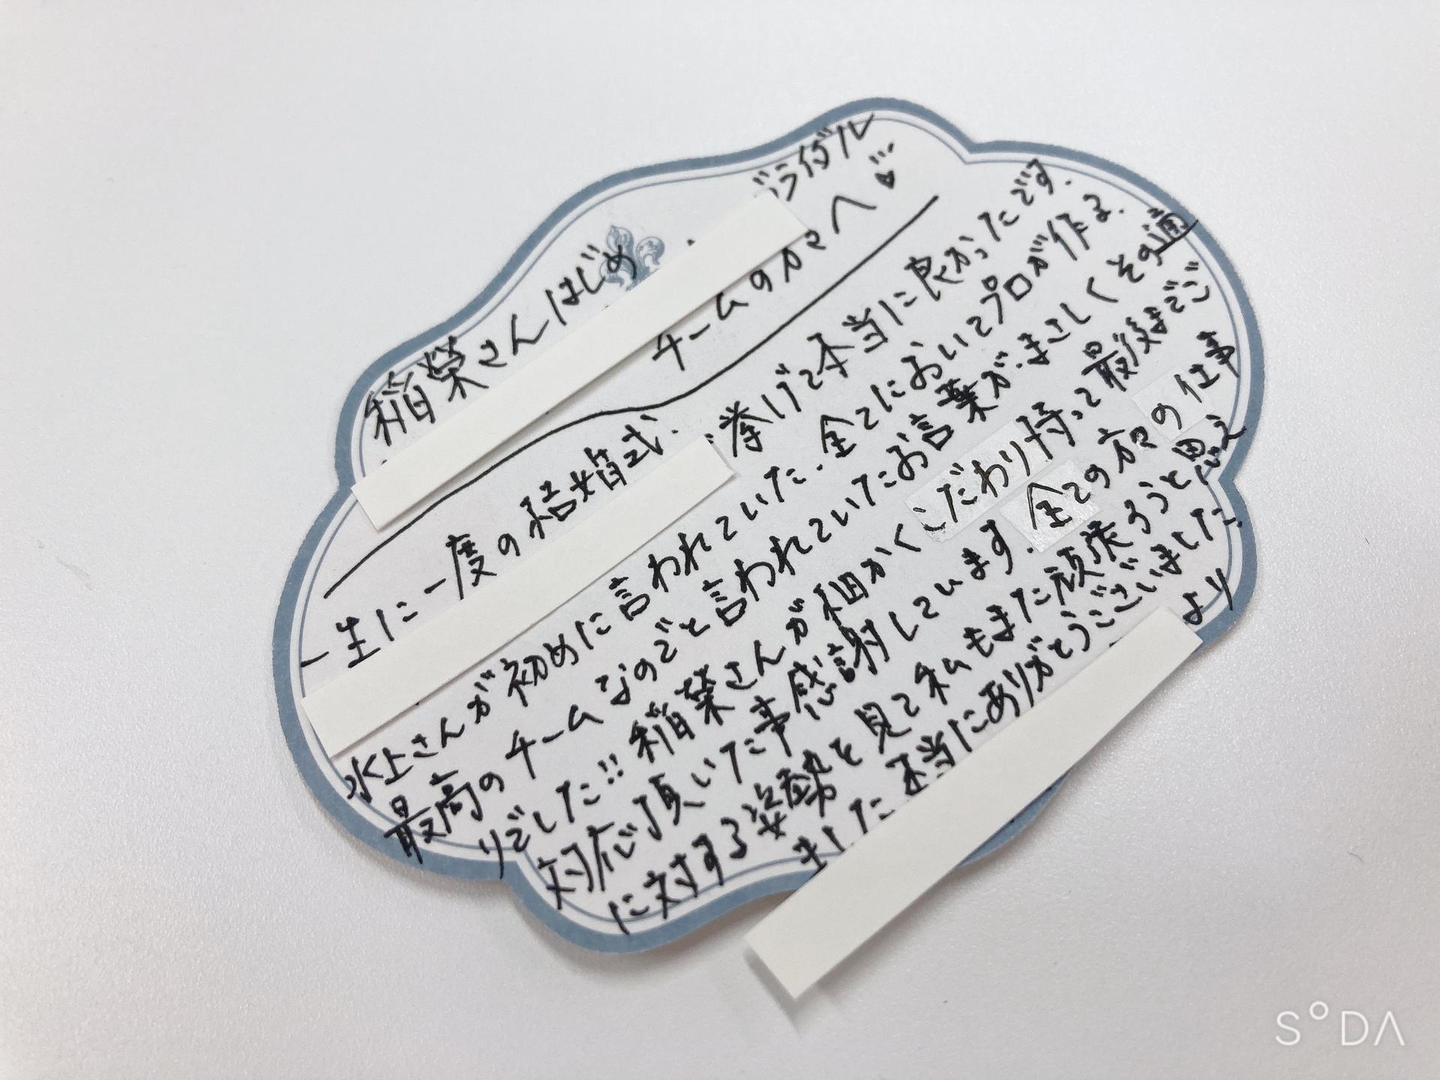 稲葉さんはじめ
ブライダル
チームの方々へ
一生に一度の結婚式.
挙げて本当に良かったです.
水上さんが初めに言われていた.全てにおいてプロが作る.
最高のチームなのでと言われていたお言葉が.まさしくその通
りでした!!稲葉さんが細かくこだわり持って最後までご
対応頂いた事感謝しています.全ての方々の仕事
に対する姿勢を見て私もまた頑張ろうと思え
ました 本当にありがとうございました.
より
SODA